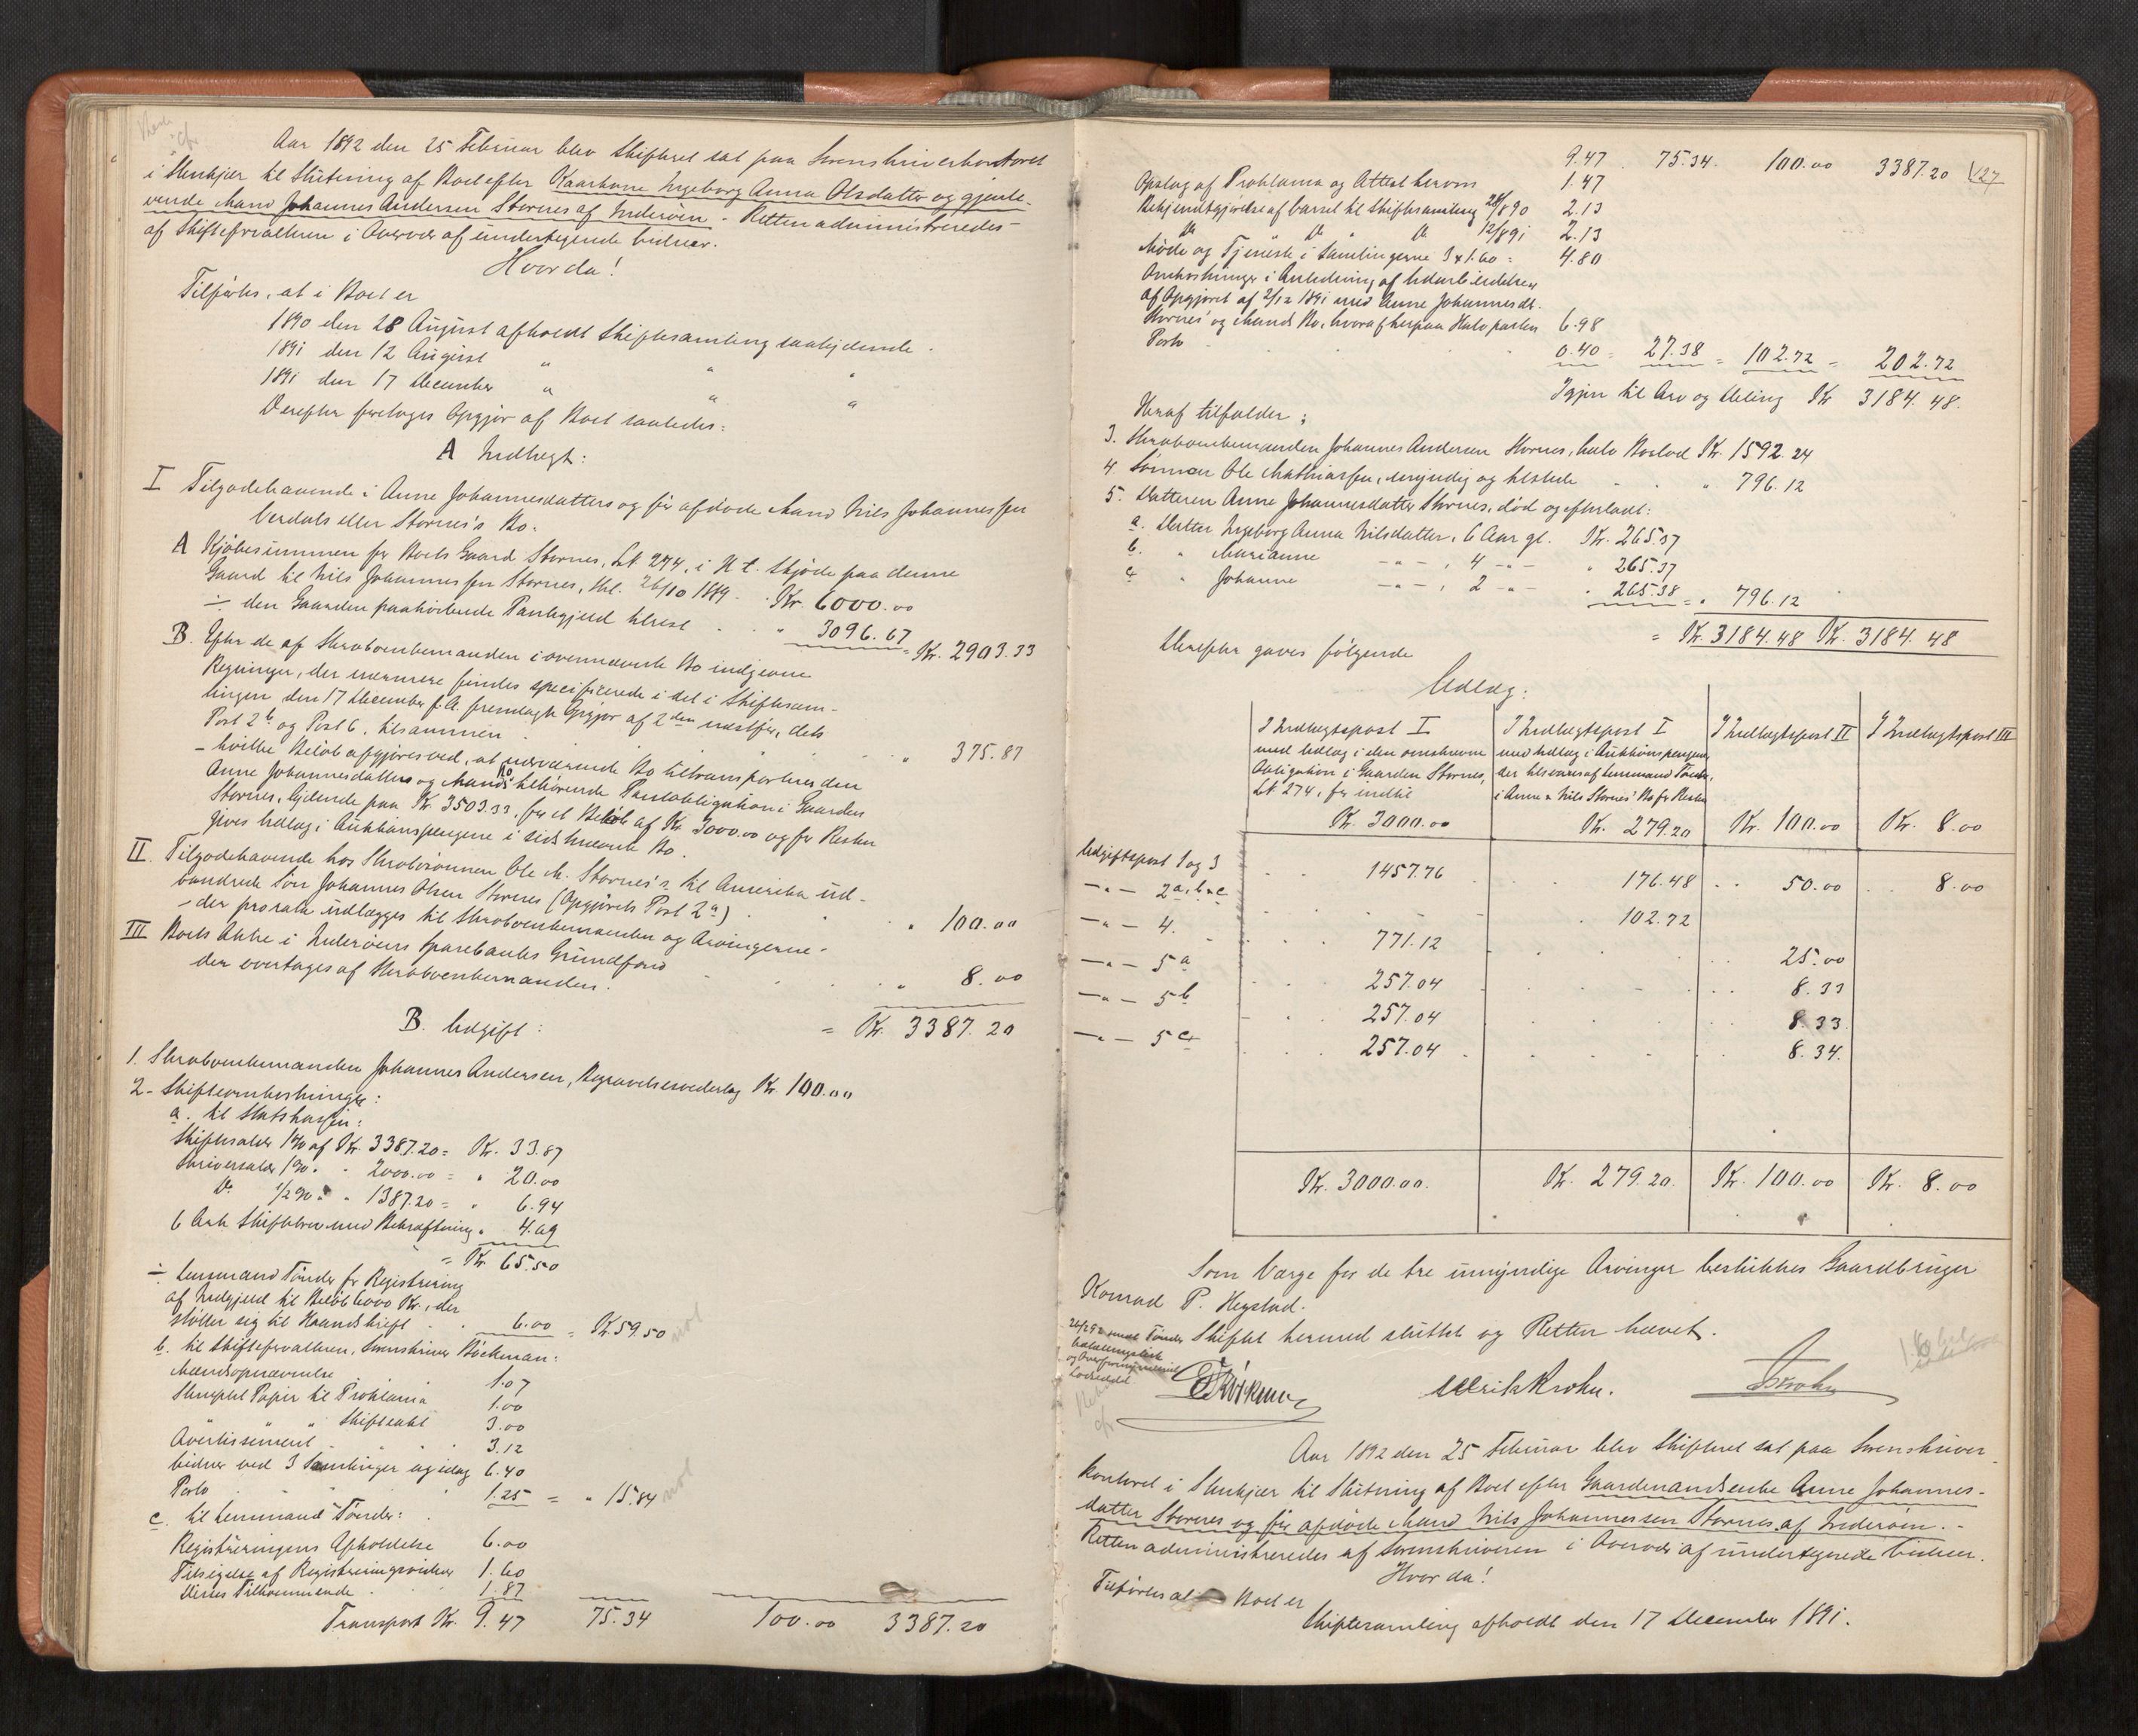 Aar 1892 den 25 Februar blev Skifteret sat paa Sorenskriverkontoret
i Stenkjær til Slutning af Boet efter Kaarkone Ingeborg Anna Olsdatter og gjenle-
vende Mand Johannes Andersen Stornes af Inderøen. Retten administreredes
af Skifteforvalteren i Overvær af undertegnede Vidner.
Hvorda!
Tilførtes, at i Boet er
1890 den 28 August afholdt Skiftesamling saalydende.
1891 den 12 August " " "
1891 den 17 December " " "
Derefter foretoges Opgjør af Boet saaledes:
A Indtægt:
I Tilgodehavende i Anne Johannesdatters og før afdøde Mand Nils Johannessen
Verdals eller Stornes's Bo.
A Kjøbesummen for Boets Gaard Stornes, L№ 274, i H. t. Skjøde paa denne
Gaard til Nils Johannessen Stornes, thl. 26/10 1889 . Kr. 6000.00
÷ den Gaarden paahvilende Pantegjeld tilrest . . " 3096.67 = Kr. 2903.33
B. Efter de af Skraboenkemanden i ovennævnte Bo indgivne
Regninger, der nærmere findes specificerede i det i Skiftesam-
lingen den 17 December f.A. fremlagte Opgjør af 2den næstfør, dets
Post 2b og Post 6, tilsammen . . . " 375.87
- hvilke Beløb afgjøres ved, at nærværende Bo tiltransporteres den
Anne Johannesdatters og Mands Bo tilhørende Pantobligation i Gaarden
Stornes, lydende paa Kr. 3503.33, for et Beløb af Kr. 3000.00 og for Resten
gives Udlæg i Auktionspengene i sidstnævnte Bo.
II. Tilgodehavende hos Skrabsønnen Ole M. Stornes's til Amerika ud-
vandrede Søn Johannes Olsen Stornes (Opgjørets Post 2a) . . " 100.00
- der prorata udlægges til Skraboenkemanden og Arvingerne.
III Boets Aktie i Inderøens Sparebanks Grundfond . . . " 8.00
der overtages af Skraboenkemanden.
= Kr. 3387.20
B. Udgift:
1. Skraboenkemanden Johannes Andersen, Begravelsesvederlag Kr. 100.00
2. Skifteomkostninger:
a. til Statskassen:
Skiftesalær 1% af Kr. 3387.20 = Kr. 33.87
Skriversalær 1% " " 2000.00 = " 20.00
Do 1/2% " " 1387.20 = " 6.94
6 Ark Skiftebrev med Bekræftning " 4.69
= Kr. 65.50
÷ Lensmand Tønder for Registrering
af Indgjeld til Beløb 6000 Kr., der
støtter sig til Haandskrift . . 6.00 = Kr. 59.50
b. til Skifteforvalteren, Sorenskriver Böckman:
Mandsopnævnelse 1.07
Stemplet Papir til Proklama 1.00
" " " Skifteakt 3.00
Avertissement . . . 3.12
Vidner ved 3 Samlinger og idag 6.40
Porto . . . 1.25 = " 15.84
c. til Lensmand Tønder:
Registreringens Afholdelse 6.00
Tilsigelse af Registreringsvidner 1.60
Disses Tilkommende . 1.87
Transport Kr. 9.47 75.34 100.00 3387.20
9.47 75.34. 100.00 3387.20 127
Opslag af Proklama og Attest herom 1.47
Bekjendtgjørelse af Varsel til Skiftesamling 28/890 2.13
Do " Do " Do 12/891 2.13
Møde og Tjeneste i Samlingerne 3 x 1.60 = 4.80
Omkostninger i Anledning af Udarbeidelsen
af Opgjøret af 2/12 1891 med Anne Johannesdr.
Stornes' og Mands Bo, hvoraf herpaa Halvparten 6.98
Porto . . . 0.40 = 27.38 = 102.72 = 202.72
Igjen til Arv og Deling Kr. 3184.48.
Heraf tilfalder:
3. Skraboenkemanden Johannes Andersen Stornes, halv Boslod Kr. 1592.24
4. Sønnen Ole Mathiassen, myndig og tilstede . . " 796.12
5. Datteren Anne Johannesdatter Stornes, død og efterladt:
a. Datter Ingeborg Anna Nilsdatter, 6 Aar gl. Kr. 265.37
b. " Marianne -"- , 4 -"- " 265.37
c. " Johanne -"- , 2 -"- " 265.38 = " 796.12
= Kr. 3184.48 Kr. 3184.48
Derefter gaves følgende
Udlæg:
I Indtægtspost I
med Udlæg i den omskrevne
Obligation i Gaarden Stornes,
L№ 274, for indtil
Kr. 3000.00
I Indtægtspost I
med Udlæg i Auktionspengene
der tilsvares af Lensmand Tønder,
i Anne & Nils Stornes' Bo for Resten
Kr. 279.20
I Indtægtspost II
Kr. 100.00
I Indtægtspost III
Kr. 8.00
Udgiftspost 1 og 3 . . 1457.76 . . 176.48 . . 50.00 . . 8.00
-"- 2a, b & c . . . . 102.72
-"- 4. . . 771.12 . . . 25.00
-"- 5a . . 257.04 . . . 8.33
-"- 5b . . 257.04 . . . 8.33.
-"- 5c . . 257.04 . . . 8.34.
Kr. 3000.00. Kr. 279.20. Kr. 100.00 Kr. 8.00
Som Værge for de tre umyndige Arvinger beskikkes Gaardbruger
Konrad P. Hegstad.
Skiftet hermed sluttet og Retten hævet.
Böckman Ulrik Krohn. Krohn
Aar 1892 den 25 Februar blev Skifteret sat paa Sorenskriver-
kontoret i Stenkjær til Slutning af Boet efter Gaardmandsenke Anne Johannes-
datter Stornes og før afdøde Mand Nils Johannessen Stornes af Inderøen. -
Retten administreredes af Sorenskriveren i Overvær af undertegnede Vidner.
Hvor da!
Tilførtes at i Boet er
Skiftesamling afholdt den 17 December 1891.